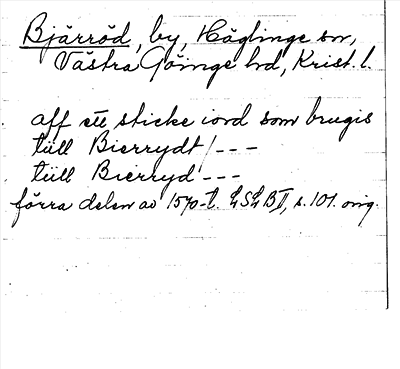 Bjärröd, by, Häglinge sn,
Västra Göinge hd, Krist. l.
aff ett sticke iord som brugis
till Bierrydt / - - -
tiill Bierryd - - -
förra delen av 1570-t. LSLB II, s. 101. orig.